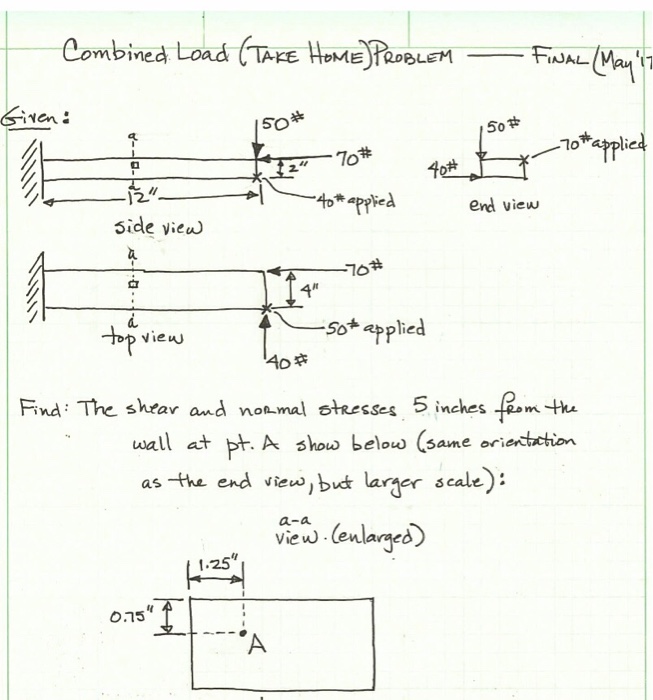 Combined Load (TAKE HOME) PROBLEM — FINAL (May '17
Given:
50#
a
70#
2"
a
12"
40# applied
side view
50#
70# applied
40#
end view
a
70#
4"
a
50# applied
top view
40#
Find: The shear and normal stresses 5 inches from the
wall at pt. A show below (same orientation
as the end view, but larger scale):
a-a
view. (enlarged)
1.25"
0.75"
A